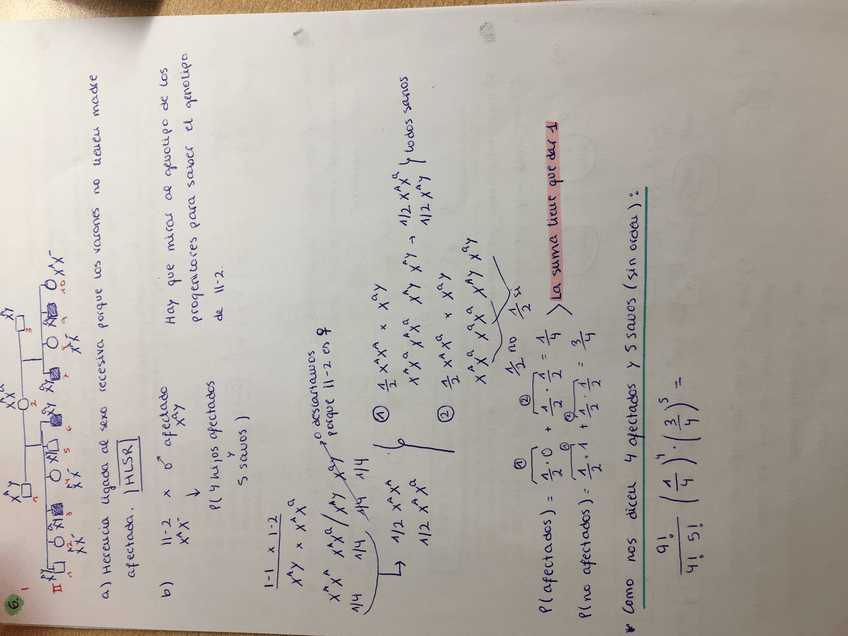 6.
I
X^A Y
X^A X^a
X^A Y
1
2
3
II
X^A Y
1
2
3
4
5
6
7
8
9
10
X^A X^-
a) Herencia ligada al sexo recesiva porque los varones no tienen madre
afectada. HLSR
b) II-2 x ♂ afectado
X^A X^- X^a Y
Hay que mirar el genotipo de los
progenitores para saber el genotipo
de II-2.
↓
P(4 hijos afectados
y
5 sanos)
I-1 x I-2
X^A Y x X^A X^a
X^A X^A X^A X^a / X^A Y X^a Y → descartamos
porque II-2 es ♀
1/4 1/4 1/4 1/4
1/2 X^A X^A
1/2 X^A X^a
① 1/2 X^A X^A x X^a Y
X^A X^a X^A X^a X^A Y X^A Y → 1/2 X^A X^a
1/2 X^A Y } todos sanos
② 1/2 X^A X^a x X^a Y
X^A X^a X^a X^a X^A Y X^a Y
1/2 no 1/2 si
① ②
P(afectados) = 1/2 · 0 + 1/2 · 1/2 = 1/4
① ②
P(no afectados) = 1/2 · 1 + 1/2 · 1/2 = 3/4
> La suma tiene que dar 1
* Como nos dicen 4 afectados y 5 sanos (sin orden):
9!/4! 5! (1/4)^4 · (3/4)^5 =